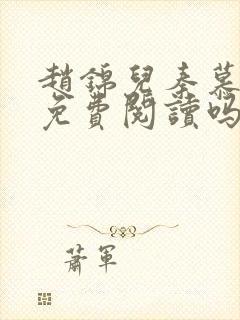 趙錦兒秦慕
免費閱讀嗎
蕭軍